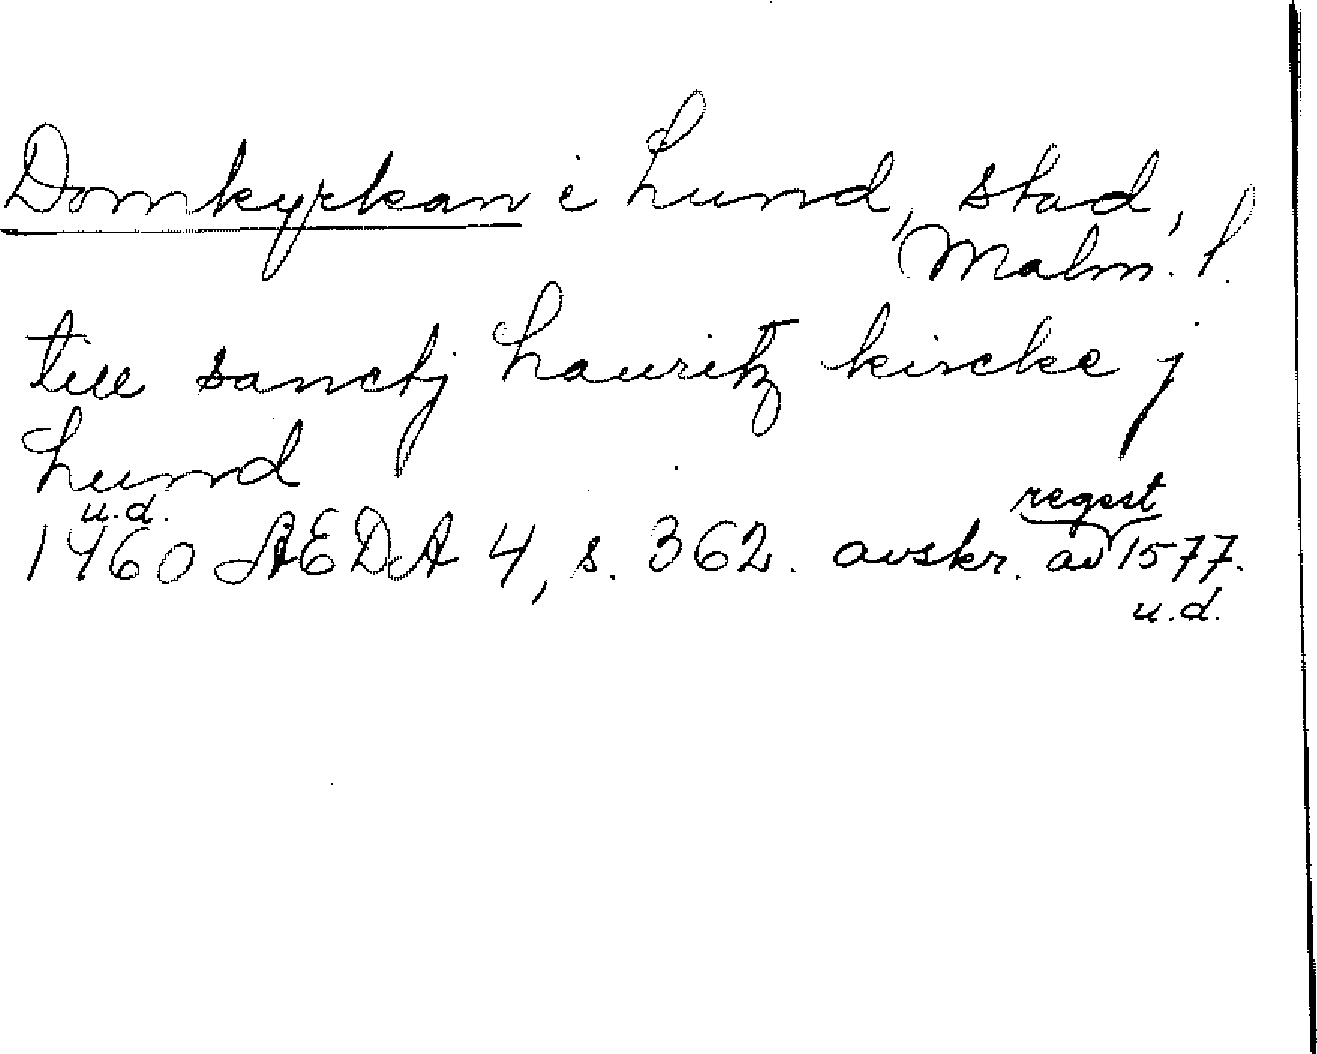 Domkyrkan i Lund, stad,
Malm. l.
till sanctj Lauritz kircke j
Lund
u.d.
regest
1460 AEDA 4, s. 362. avskr. av 1577.
u.d.